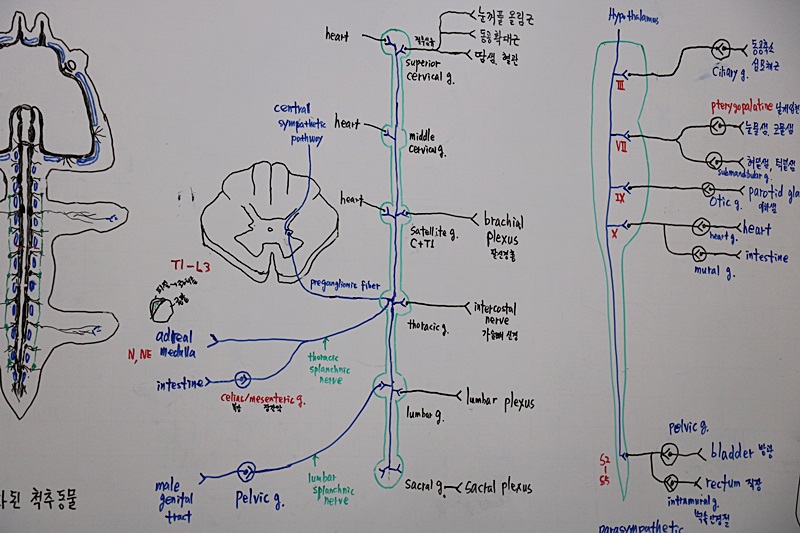 heart
눈꺼풀 올림근
동공확대근
땀샘, 혈관
superior
cervical g.
central
sympathetic
pathway
heart
middle
cervical g.
heart
satellite g.
C+T1
brachial
plexus
팔신경총
T1-L3
preganglionic fiber
thoracic g.
intercostal
nerve
가슴폐 신경
adreal
medulla
N, NE
thoracic
splanchnic
nerve
intestine
celiac/mesenteric g.
lumbar g.
lumbar plexus
male
genital
tract
Pelvic g.
lumbar
splanchnic
nerve
sacral g.
sacral plexus
된 척추동물
Hypothalamus
III
Ciliary g.
동공축소
섬모체근
VII
pterygopalatine
눈물샘, 코물샘
혀밑샘, 턱밑샘
submandibular g.
IX
Otic g.
parotid gla
X
heart
heart g.
intestine
mural g.
Pelvic g.
S2
S5
bladder 방광
rectum 직장
intramural g.
parasympathetic